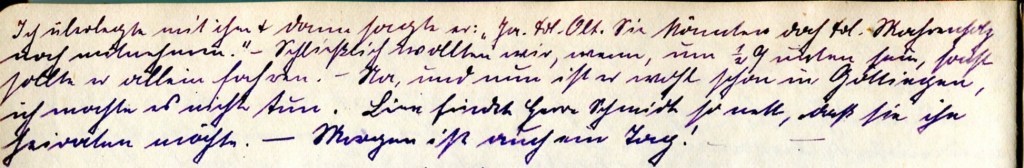 Ich überlegte mit ihm & dann sagte er: „Ja. Frl. Olt. Sie könnten doch Frl. Mahrenholz
noch mitnehmen." – Schließlich wollten wir, wenn, um ½ 9 unten sein, sonst
sollte er allein fahren. – Na, und nun ist er wohl schon in Göttingen,
ich mochte es nicht tun. Line findet Herrn Schmidt so nett, daß sie ihn
heiraten möchte. — Morgen ist auch ein Tag! —